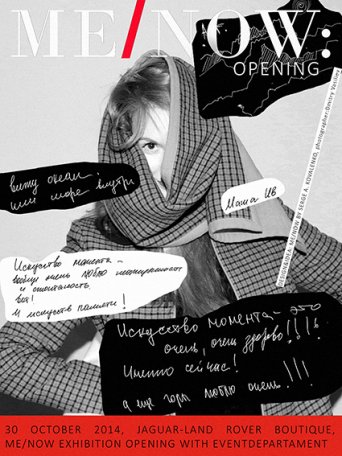 ME/NOW:
OPENING
вижу океан
или море внутри
Маша Ив
Искусство момента –
вообще очень люблю
и спонтанность
вот!
И искусств памяти!
Искусство момента – это
очень, очень здорово!!!!
Именно сейчас!
а ещё горы люблю очень!!!
DESIGN&IDEA: ME/NOW BY SERGE A. KOVALENKO, photographer: Dmitry
30 OCTOBER 2014, JAGUAR-LAND ROVER BOUTIQUE,
ME/NOW EXHIBITION OPENING WITH EVENTDEPARTAMENT